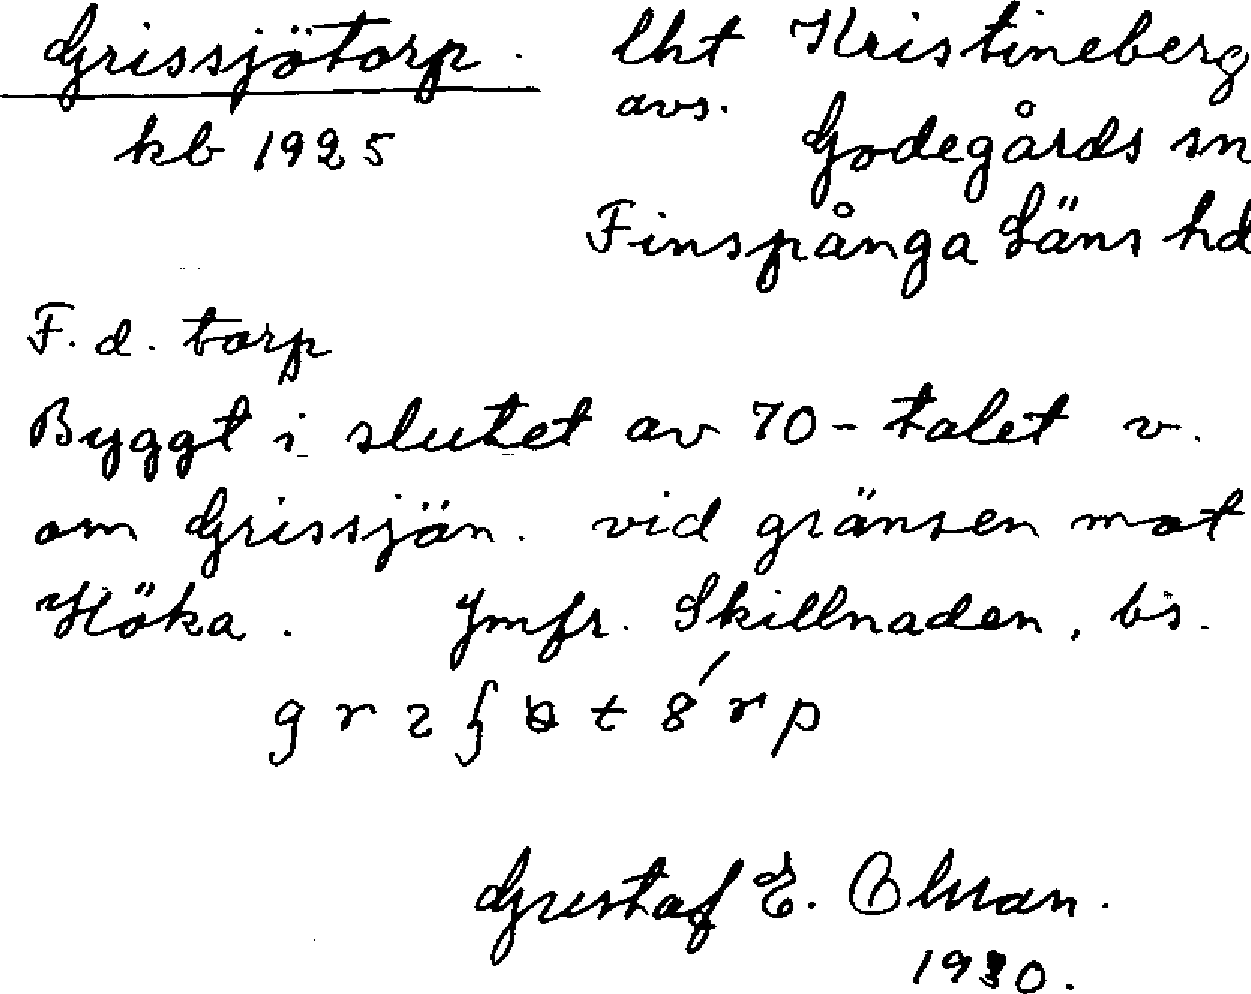 Grissjötorp. lht Kristineberg
avs.
kb 1925 Godegårds sn
Finspånga Läns hd
F. d. torp
Byggt i slutet av 70-talet v.
om Grissjön. vid gränsen mot
Höka. Jmfr. Skillnaden, bs.
Gustaf E. Olsson.
1930.